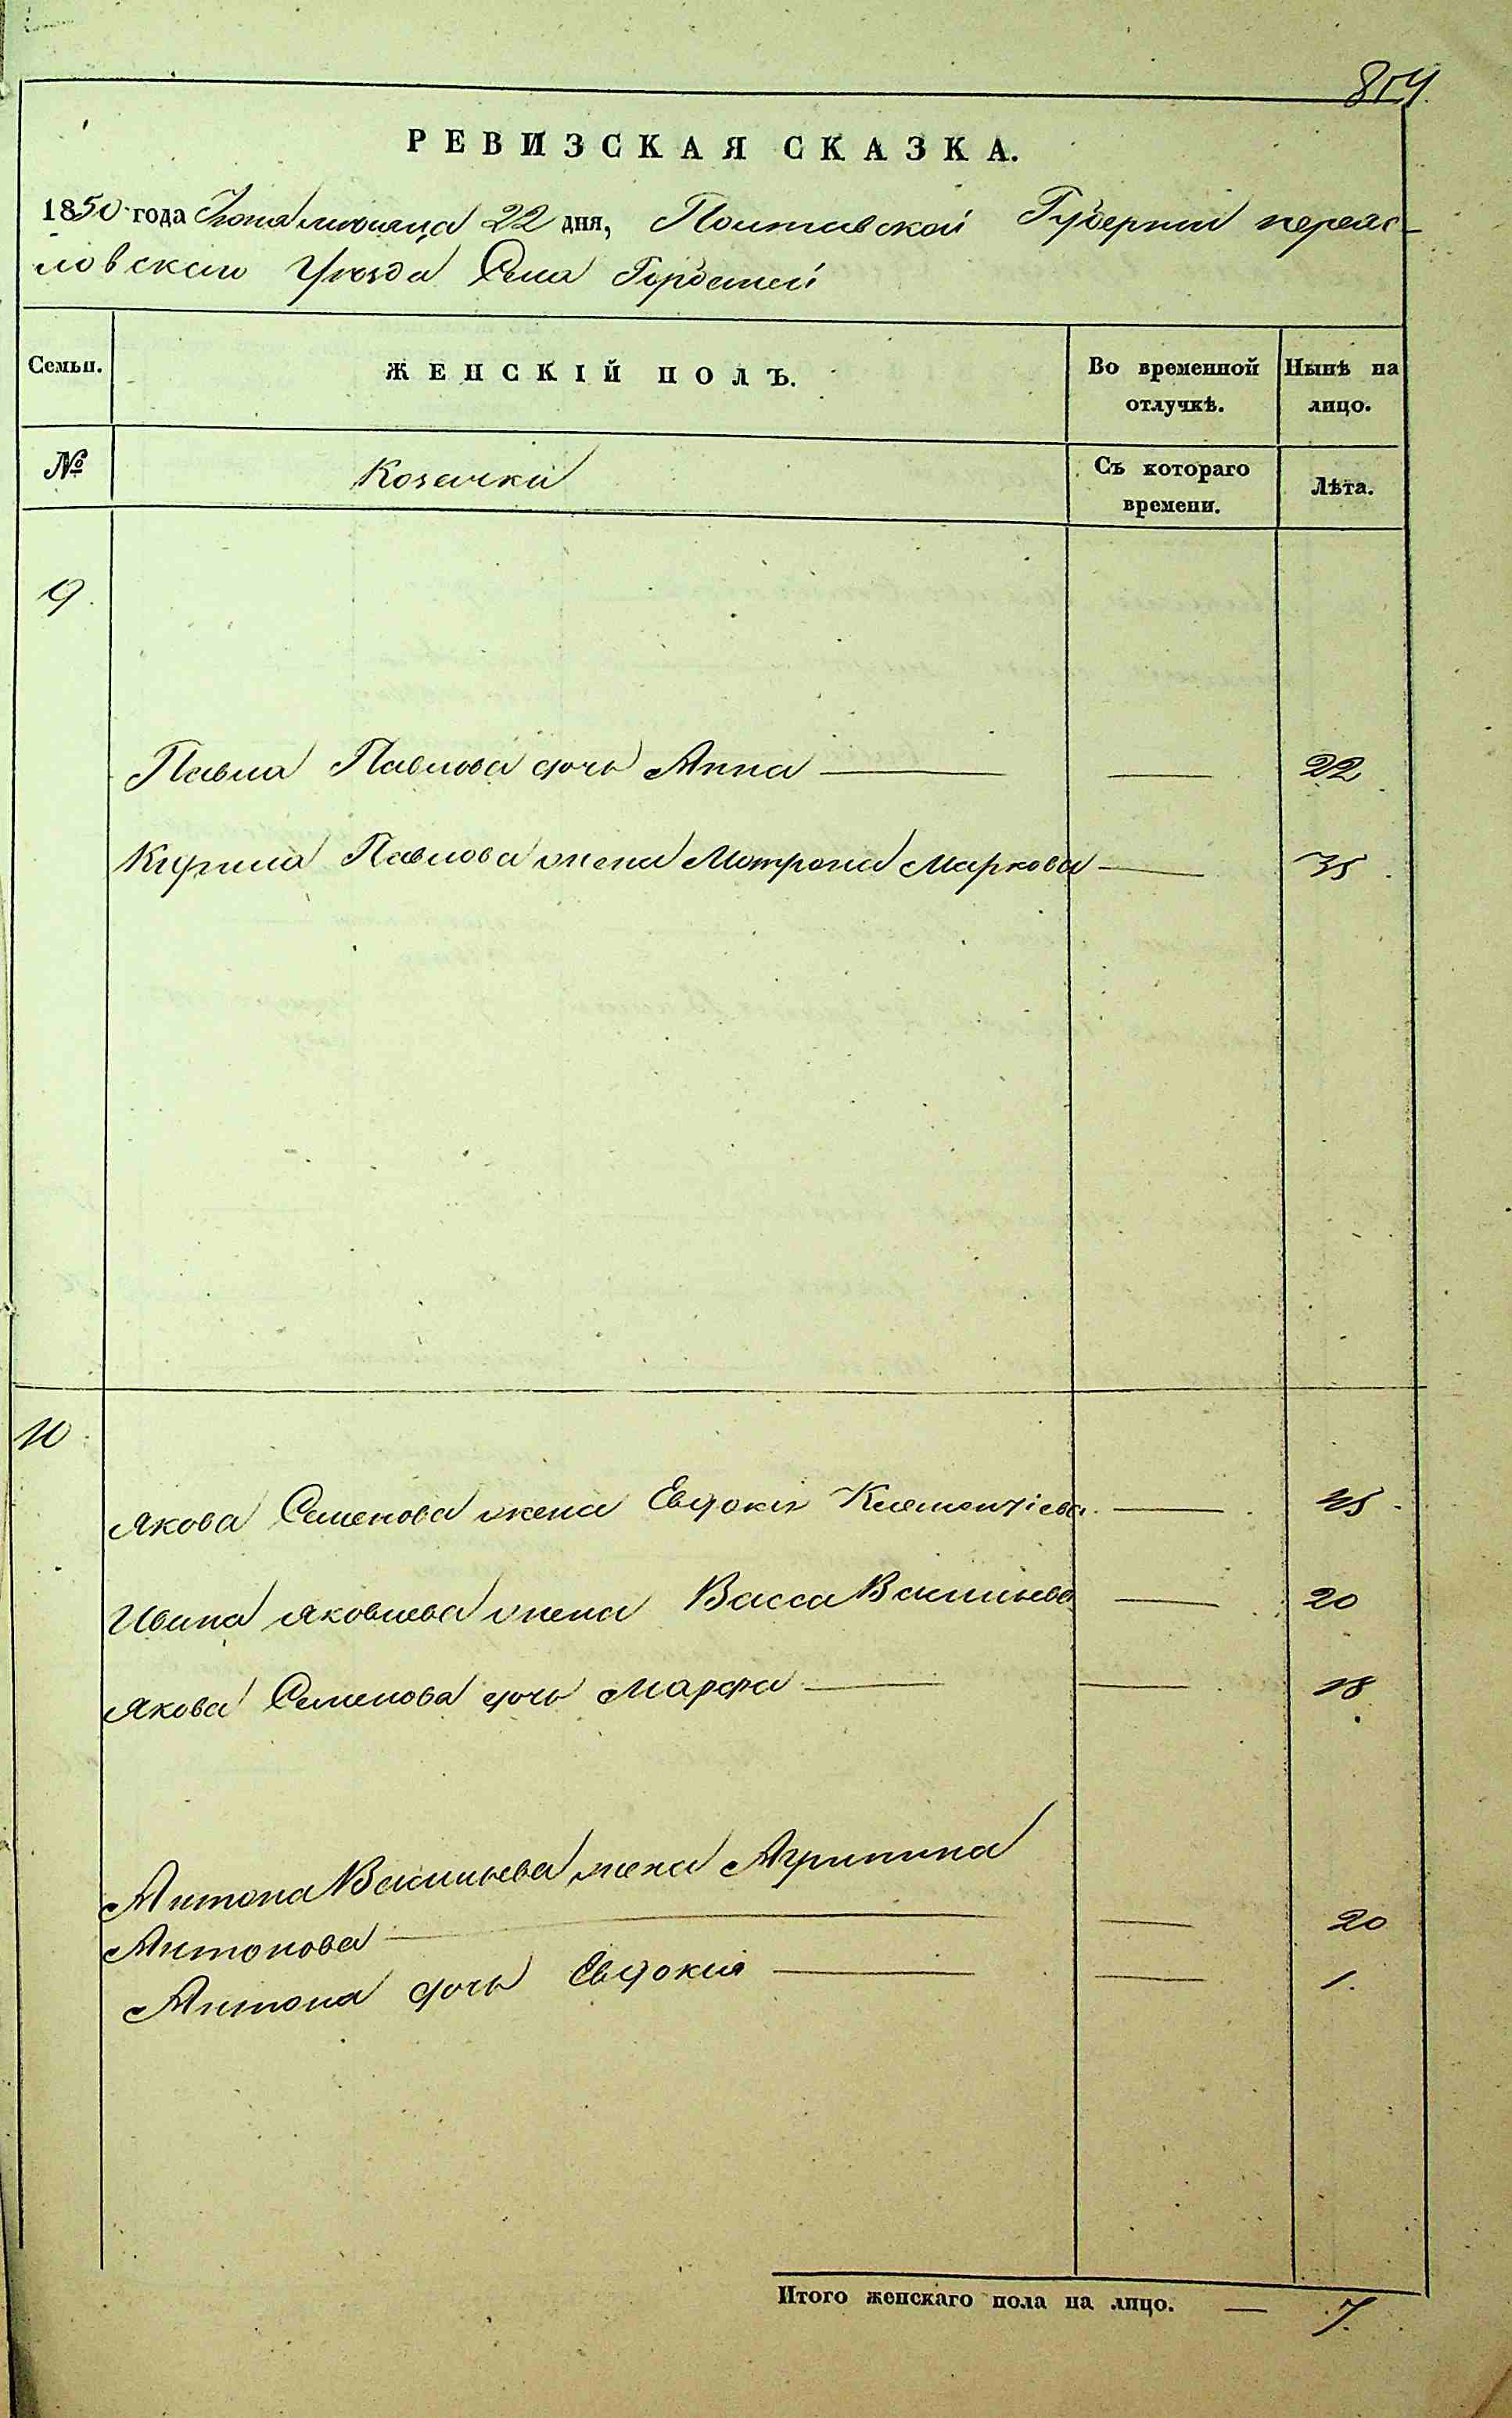 814.
РЕВИЗСКАЯ СКАЗКА.
1850 года Іюня мѣсяца 22 дня, Полтавской Губерніи переяс-
ловскаго Уѣзда Села Горбаней
Семьи. ЖЕНСКІЙ ПОЛЪ. Во временной отлучкѣ. Нынѣ на лицо.
№ Козачки Съ котораго времени. Лѣта.
9.
Павла Павлова дочь Анна — — 22
Кирила Павлова жена Мотрона Маркова — 35
10
Якова Семенова жена Евдокія Климентіева — 45
Ивана Яковлева жена Васса Васильева — 20
Якова Семенова дочь Марфа — — 18
Антона Васильева жена Агрипина
Антонова — — 20
Антона дочь Евдокия — — 1.
Итого женскаго пола на лицо. — 7.